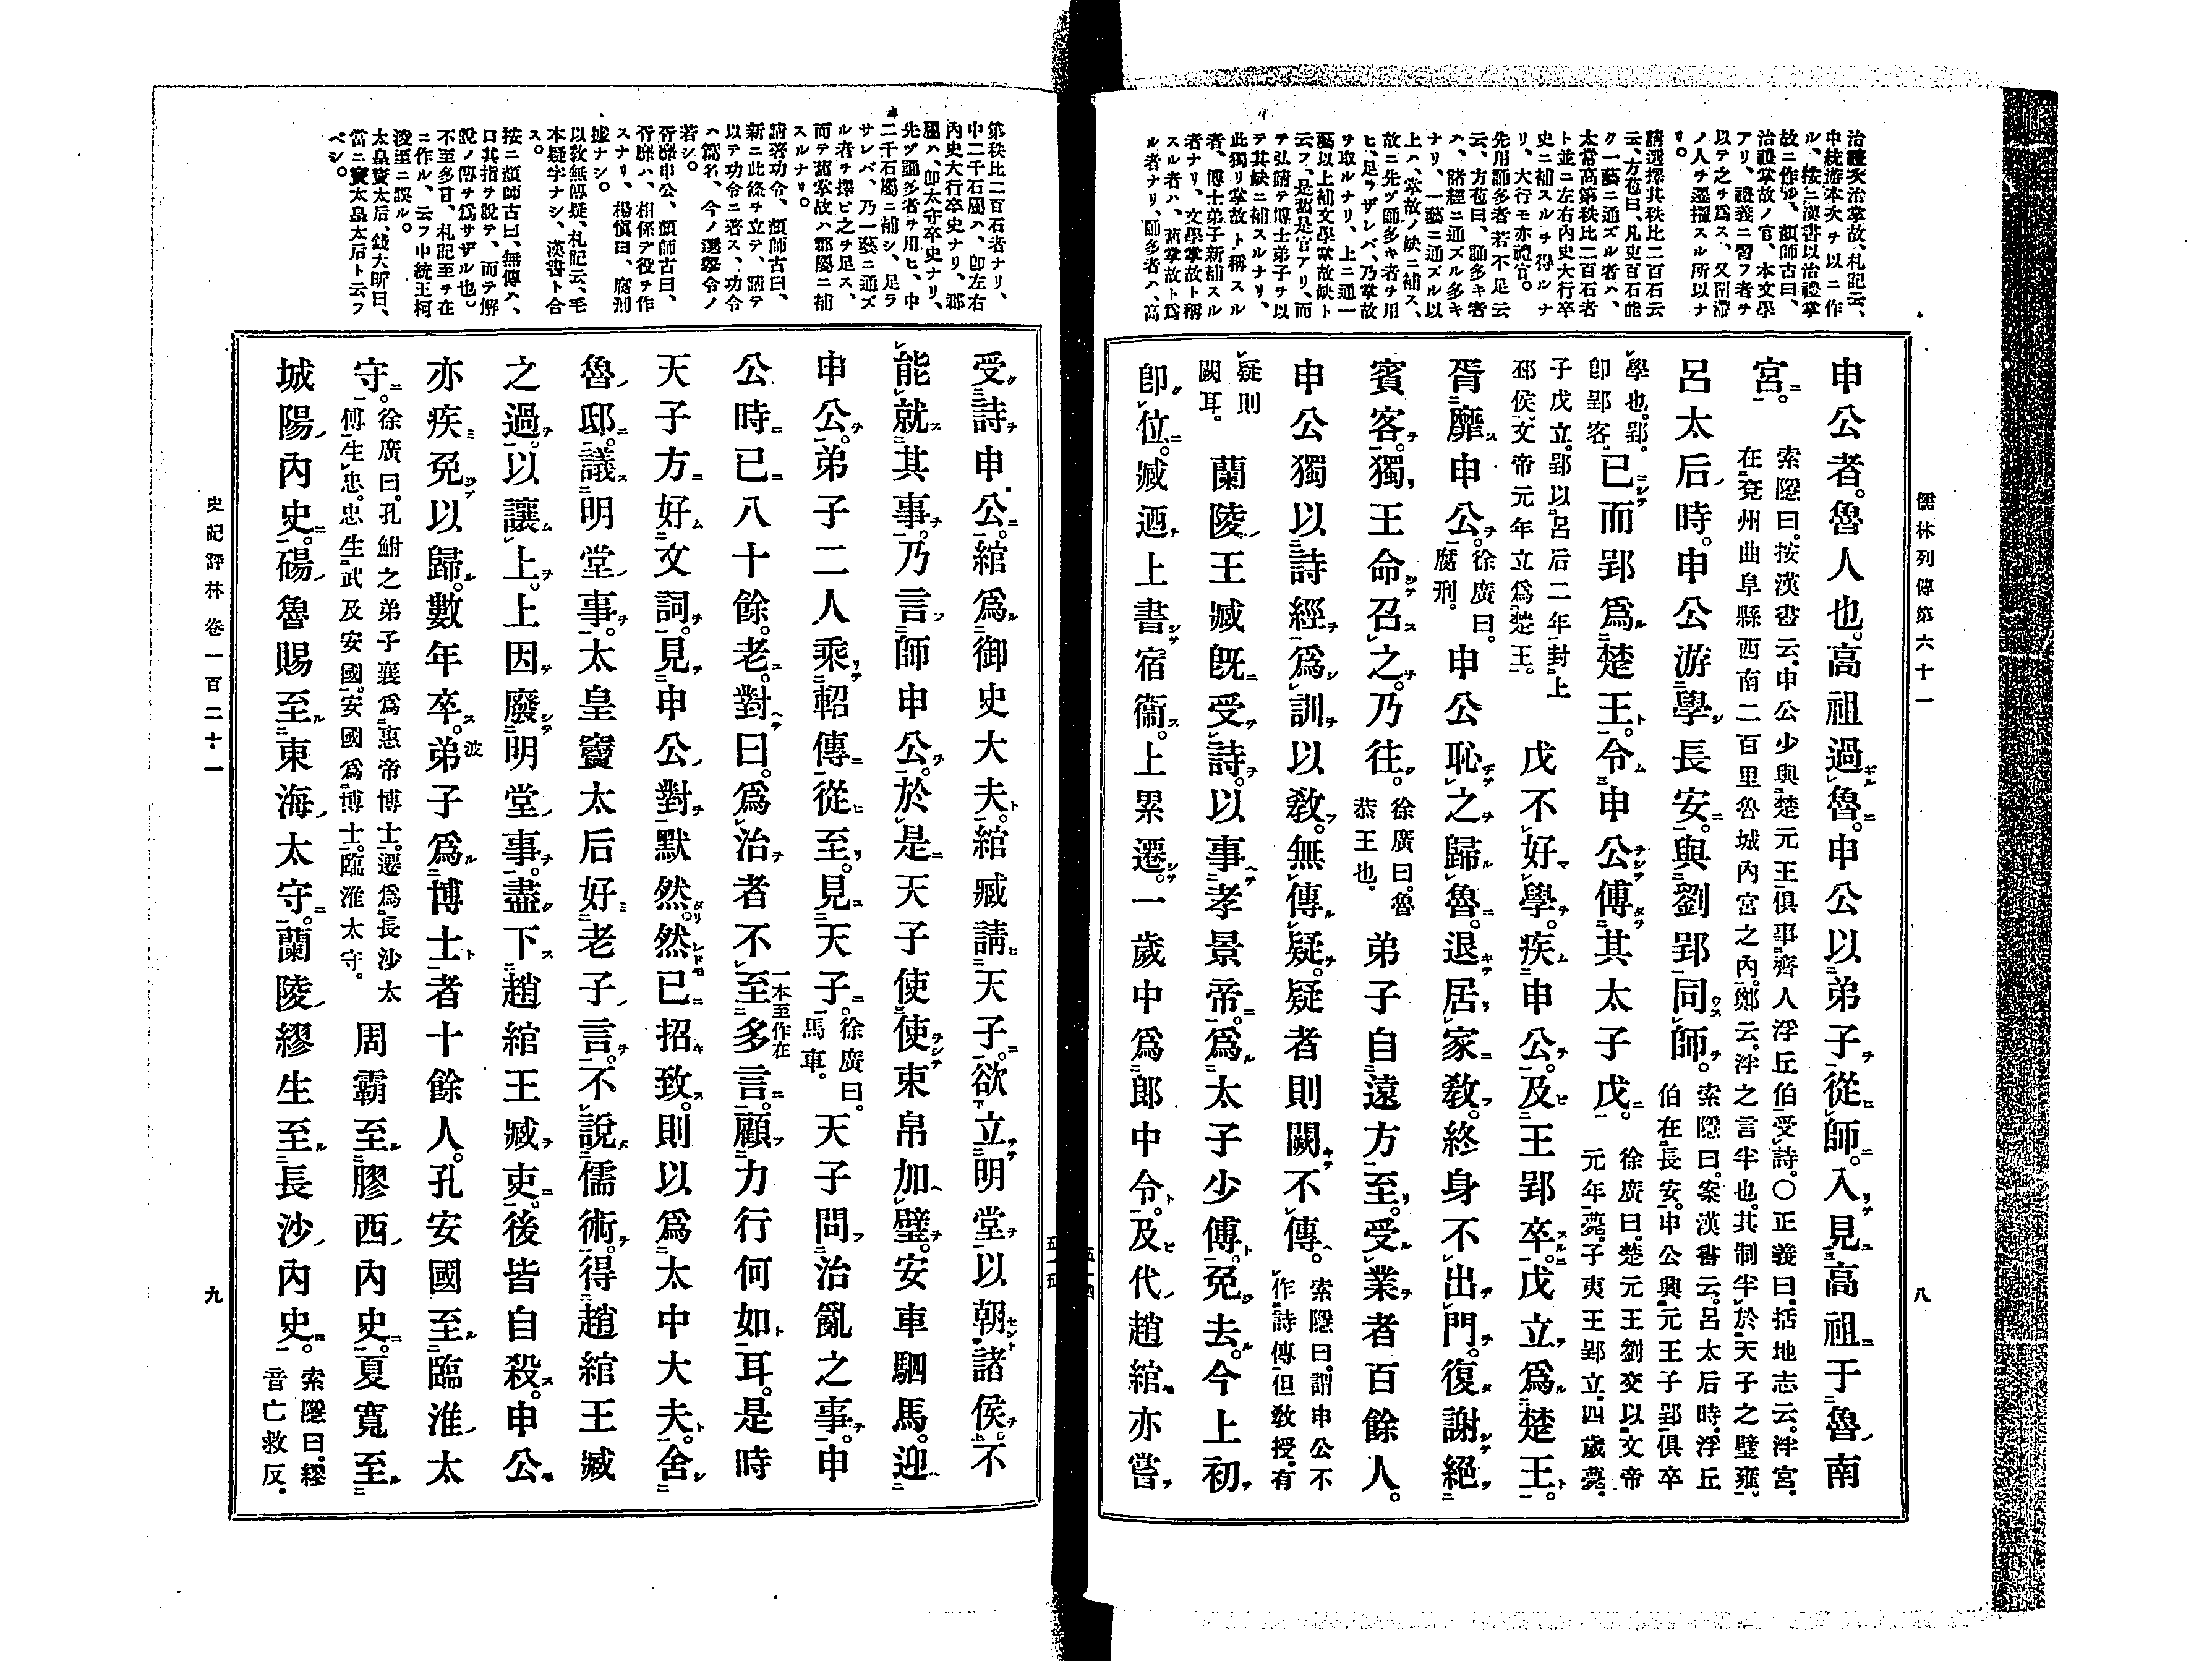 儒林列傳第六十一
八
治禮次治掌故、札記云、
中統游本次チ以ニ作
ル、按ニ漢書以治禮掌
故ニ作ル、顏師古曰、
治禮掌故ノ官、本文學
アリ、禮義ニ習フ者チ
以テ之チ爲ス、又留滯
ノ人チ遷擢スル所以ナ
リ。
請選擇其秩比二百石云
云、方苞曰、凡吏百石能
ク一藝ニ通ズル者ハ、
太常高第秩比二百石者
ト並ニ左右內史大行卒
史ニ補スルチ得ルナ
リ、大行モ亦禮官。
先用誦多者若不足云
云、方苞曰、誦多キ者
ハ、諸經ニ通ズル多キ
ナリ、一藝ニ通ズル以
上ハ、掌故ノ缺ニ補ス、
故ニ先ヅ誦多キ者チ用
ヒ、足ラザレバ、乃掌故
チ取ルナリ、上ニ通一
藝以上補文學掌故缺ト
云フ、是故是官アリ、而
テ弘請テ博士弟子チ以
テ其缺ニ補スルナリ、
此獨リ掌故ト稱スル
者、博士弟子新補スル
者ナリ、文學掌故ト稱
スル者ハ、舊掌故ト爲
ル者ナリ、誦多者ハ、高
申公者。魯人也。高祖過魯。申公以弟子從師。入見高祖于魯南
宮。索隱曰。按漢書云。申公少與楚元王俱事齊人浮丘伯受詩。〇正義曰。括地志云。泮宮。
在兗州曲阜縣西南二百里魯城內宮之內。鄭云。泮之言半也。其制半於天子之璧雍。
呂太后時。申公游學長安。與劉郢同師。索隱曰。案漢書云。呂太后時。浮丘
伯在長安。申公與元王子郢俱卒
學也。郢。
卽郢客。已而郢爲楚王。令申公傅其太子戊。徐廣曰。楚元王劉交以文帝
元年薨。子夷王郢立。四歲薨。
子戊立。郢以呂后二年封上
邳侯。文帝元年立爲楚王。戊不好學。疾申公。及王郢卒。戊立爲楚王。
胥靡申公。徐廣曰。
腐刑。申公恥之歸魯。退居家教。終身不出門。復謝絕
賓客。獨王命召之。乃往。徐廣曰。魯
恭王也。弟子自遠方至。受業者百餘人。
申公獨以詩經爲訓以教。無傳疑。疑者則闕不傳。索隱曰。謂申公不
作詩傳。但教授。有
疑則
闕耳。蘭陵王臧既受詩。以事孝景帝。爲太子少傅。免去。今上初
卽位。臧迺上書宿衞。上累遷。一歲中爲郎中令。及代趙綰亦嘗
第秩比二百石者ナリ、
中二千石屬ハ、卽左右
內史大行卒史ナリ、郡
屬ハ、卽太守卒史ナリ、
先ヅ誦多者チ用ヒ、中
二千石屬ニ補シ、足ラ
サレバ、乃一藝ニ通ズ
ル者チ擇ビ之チ足ス、
而テ舊掌故ハ郡屬ニ補
スルナリ。
請著功令、顏師古曰、
新ニ此條チ立テ、請テ
以テ功令ニ著ス、功令
ハ篇名、今ノ選擧令ノ
若シ。
胥靡申公、顏師古曰、
胥靡ハ、相係デ役チ作
スナリ、楊愼曰、腐刑
據ナシ。
以教無傳疑、札記云、毛
本疑字ナシ、漢書ト合
ス。
按ニ顏師古曰、無傳ハ、
口其指チ說テ、而テ解
說ノ傳チ爲サザル也。
不至多言、札記至チ在
ニ作ル、云フ中統王柯
淩至ニ誤ル。
太皇竇太后、錢大昕曰、
當ニ竇太皇太后ト云フ
ベシ。
受詩申公。綰爲御史大夫。綰臧請天子。欲立明堂以朝諸侯。不
能就其事。乃言師申公。於是天子使使束帛加璧。安車駟馬。迎
申公。弟子二人乘軺傳從至。見天子。徐廣曰。
馬車。天子問治亂之事。申
公時已八十餘。老。對曰。爲治者不至一本至作在多言。顧力行何如耳。是時
天子方好文詞。見申公對默然。然已招致。則以爲太中大夫。舍
魯邸。議明堂事。太皇竇太后好老子言。不說儒術。得趙綰王臧
之過。以讓上。上因廢明堂事。盡下趙綰王臧吏。後皆自殺。申公
亦疾免以歸。數年卒。弟子爲博士者十餘人。孔安國至臨淮太
守。徐廣曰。孔鮒之弟子襄爲惠帝博士。遷爲長沙太
傅。生忠。忠生武及安國。安國爲博士。臨淮太守。周霸至膠西內史。夏寬至
城陽內史。碭魯賜至東海太守。蘭陵繆生至長沙內史。索隱曰。繆
音亡救反。
史記評林 卷一百二十一
九
五一四
五一五